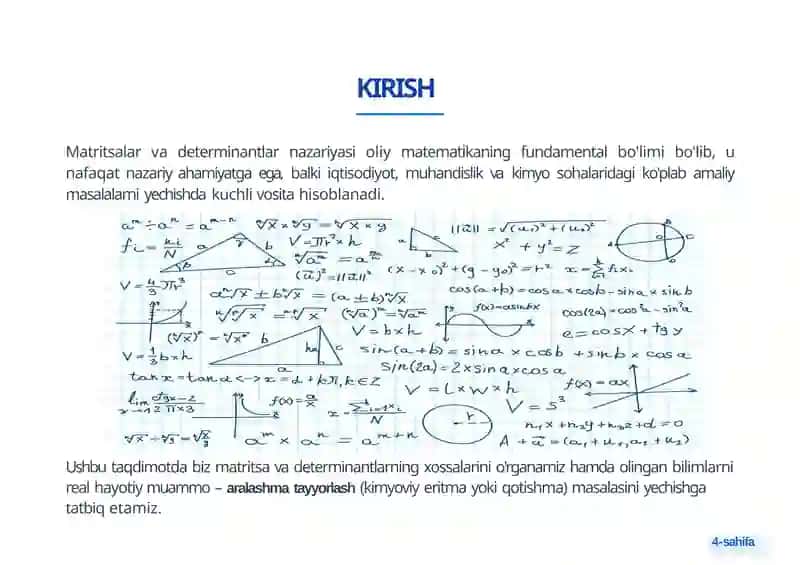 KIRISH
Matritsalar va determinantlar nazariyasi oliy matematikaning fundamental bo'limi bo'lib, u
nafaqat nazariy ahamiyatga ega, balki iqtisodiyot, muhandislik va kimyo sohalaridagi ko'plab amaliy
masalalarni yechishda kuchli vosita hisoblanadi.
aᵐ ÷ aⁿ = aᵐ⁻ⁿ
ⁿ√x × ⁿ√y = ⁿ√x × y
||u⃗|| = √(u₁)² + (u₂)²
V = πr² × h
x² + y² = z
(u⃗)² = ||u⃗||²
(x - x₀)² + (y - y₀)² = r²
V = 4/3 πr³
aⁿ√x ± bⁿ√x = (a ± b)ⁿ√x
cos(a+b) = cosa × cosb - sina × sinb
cos(2a) = cos²a - sin²a
V = b × h
e = cosx + tgy
V = 1/3 b × h
sin(a+b) = sina × cosb + sinb × cosa
sin(2a) = 2 × sina × cosa
tanx = tand <-> x = d + kπ, k∈Z
V = L × w × h
f(x) = ax
f(x) = a/x
V = s³
n₁x + n₂y + n₃z + d = 0
aᵐ × aⁿ = aᵐ⁺ⁿ
A + u⃗ = (a₁ + u₁, a₂ + u₂)
Ushbu taqdimotda biz matritsa va determinantlarning xossalarini o'rganamiz hamda olingan bilimlarni
real hayotiy muammo – aralashma tayyorlash (kimyoviy eritma yoki qotishma) masalasini yechishga
tatbiq etamiz.
4-sahifa